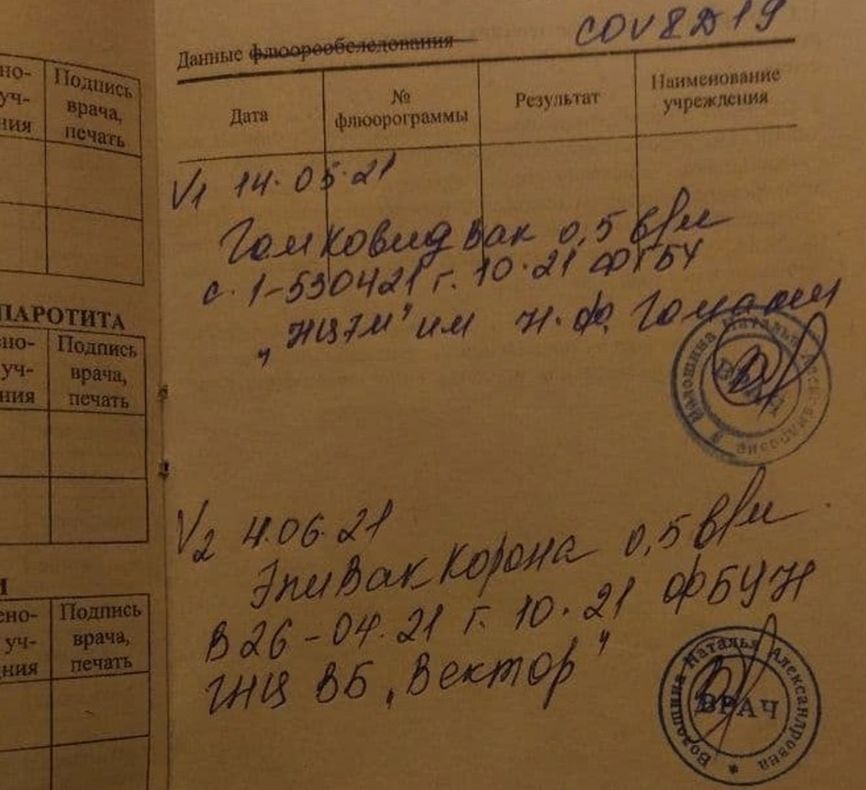 но-
уч-
ния
Подпись
врача,
печать
ПАРОТИТА
но-
уч-
ния
Подпись
врача,
печать
И
ено-
уч-
ния
Подпись
врача,
печать
COV8D19
Данные флюорообследования
Дата
№
флюорограммы
Результат
Наименование
учреждения
V1 14.05.21
Гамковидвак 0,5 в/м
с. 1-530421 г. 10.21 ФГБУ
"НЦЭМ" им Н.Ф. Гамалеи
Волошина Наталья Александровна
ВРАЧ
V2 4.06.21
ЭпиВакКорона 0,5 в/м
В26-04.21 г. 10.21 ФБУН
ГНЦ ВБ "Вектор"
Волошина Наталья Александровна
ВРАЧ